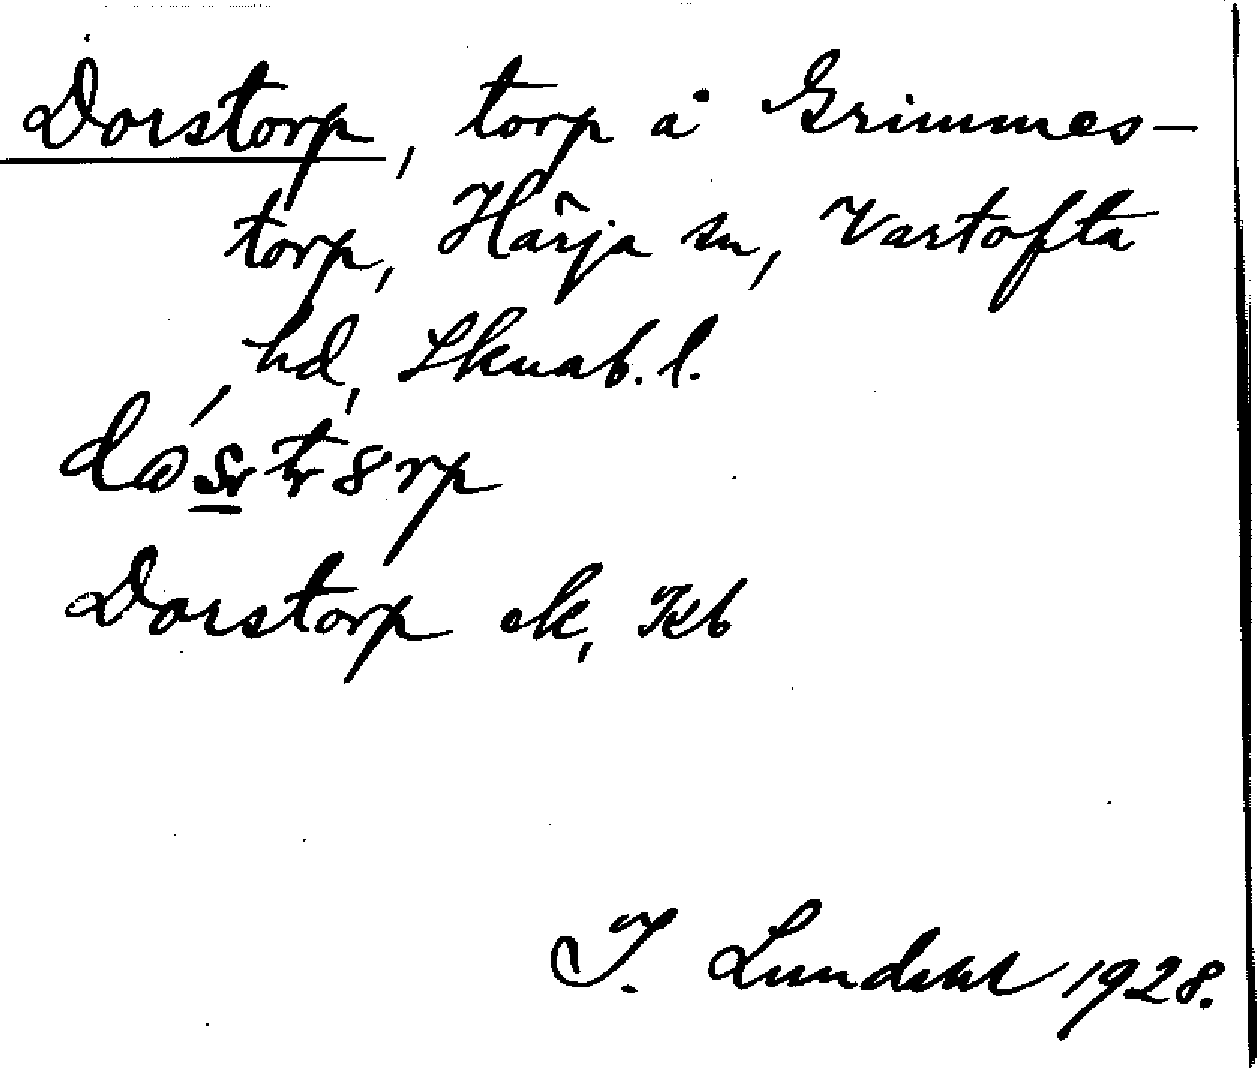 Dorstorp, torp å Grimmes-
torp, Härja sn, Vartofta
hd, Skarab. l.
Dorstorp ek, Kb
I. Lundahl 1928.